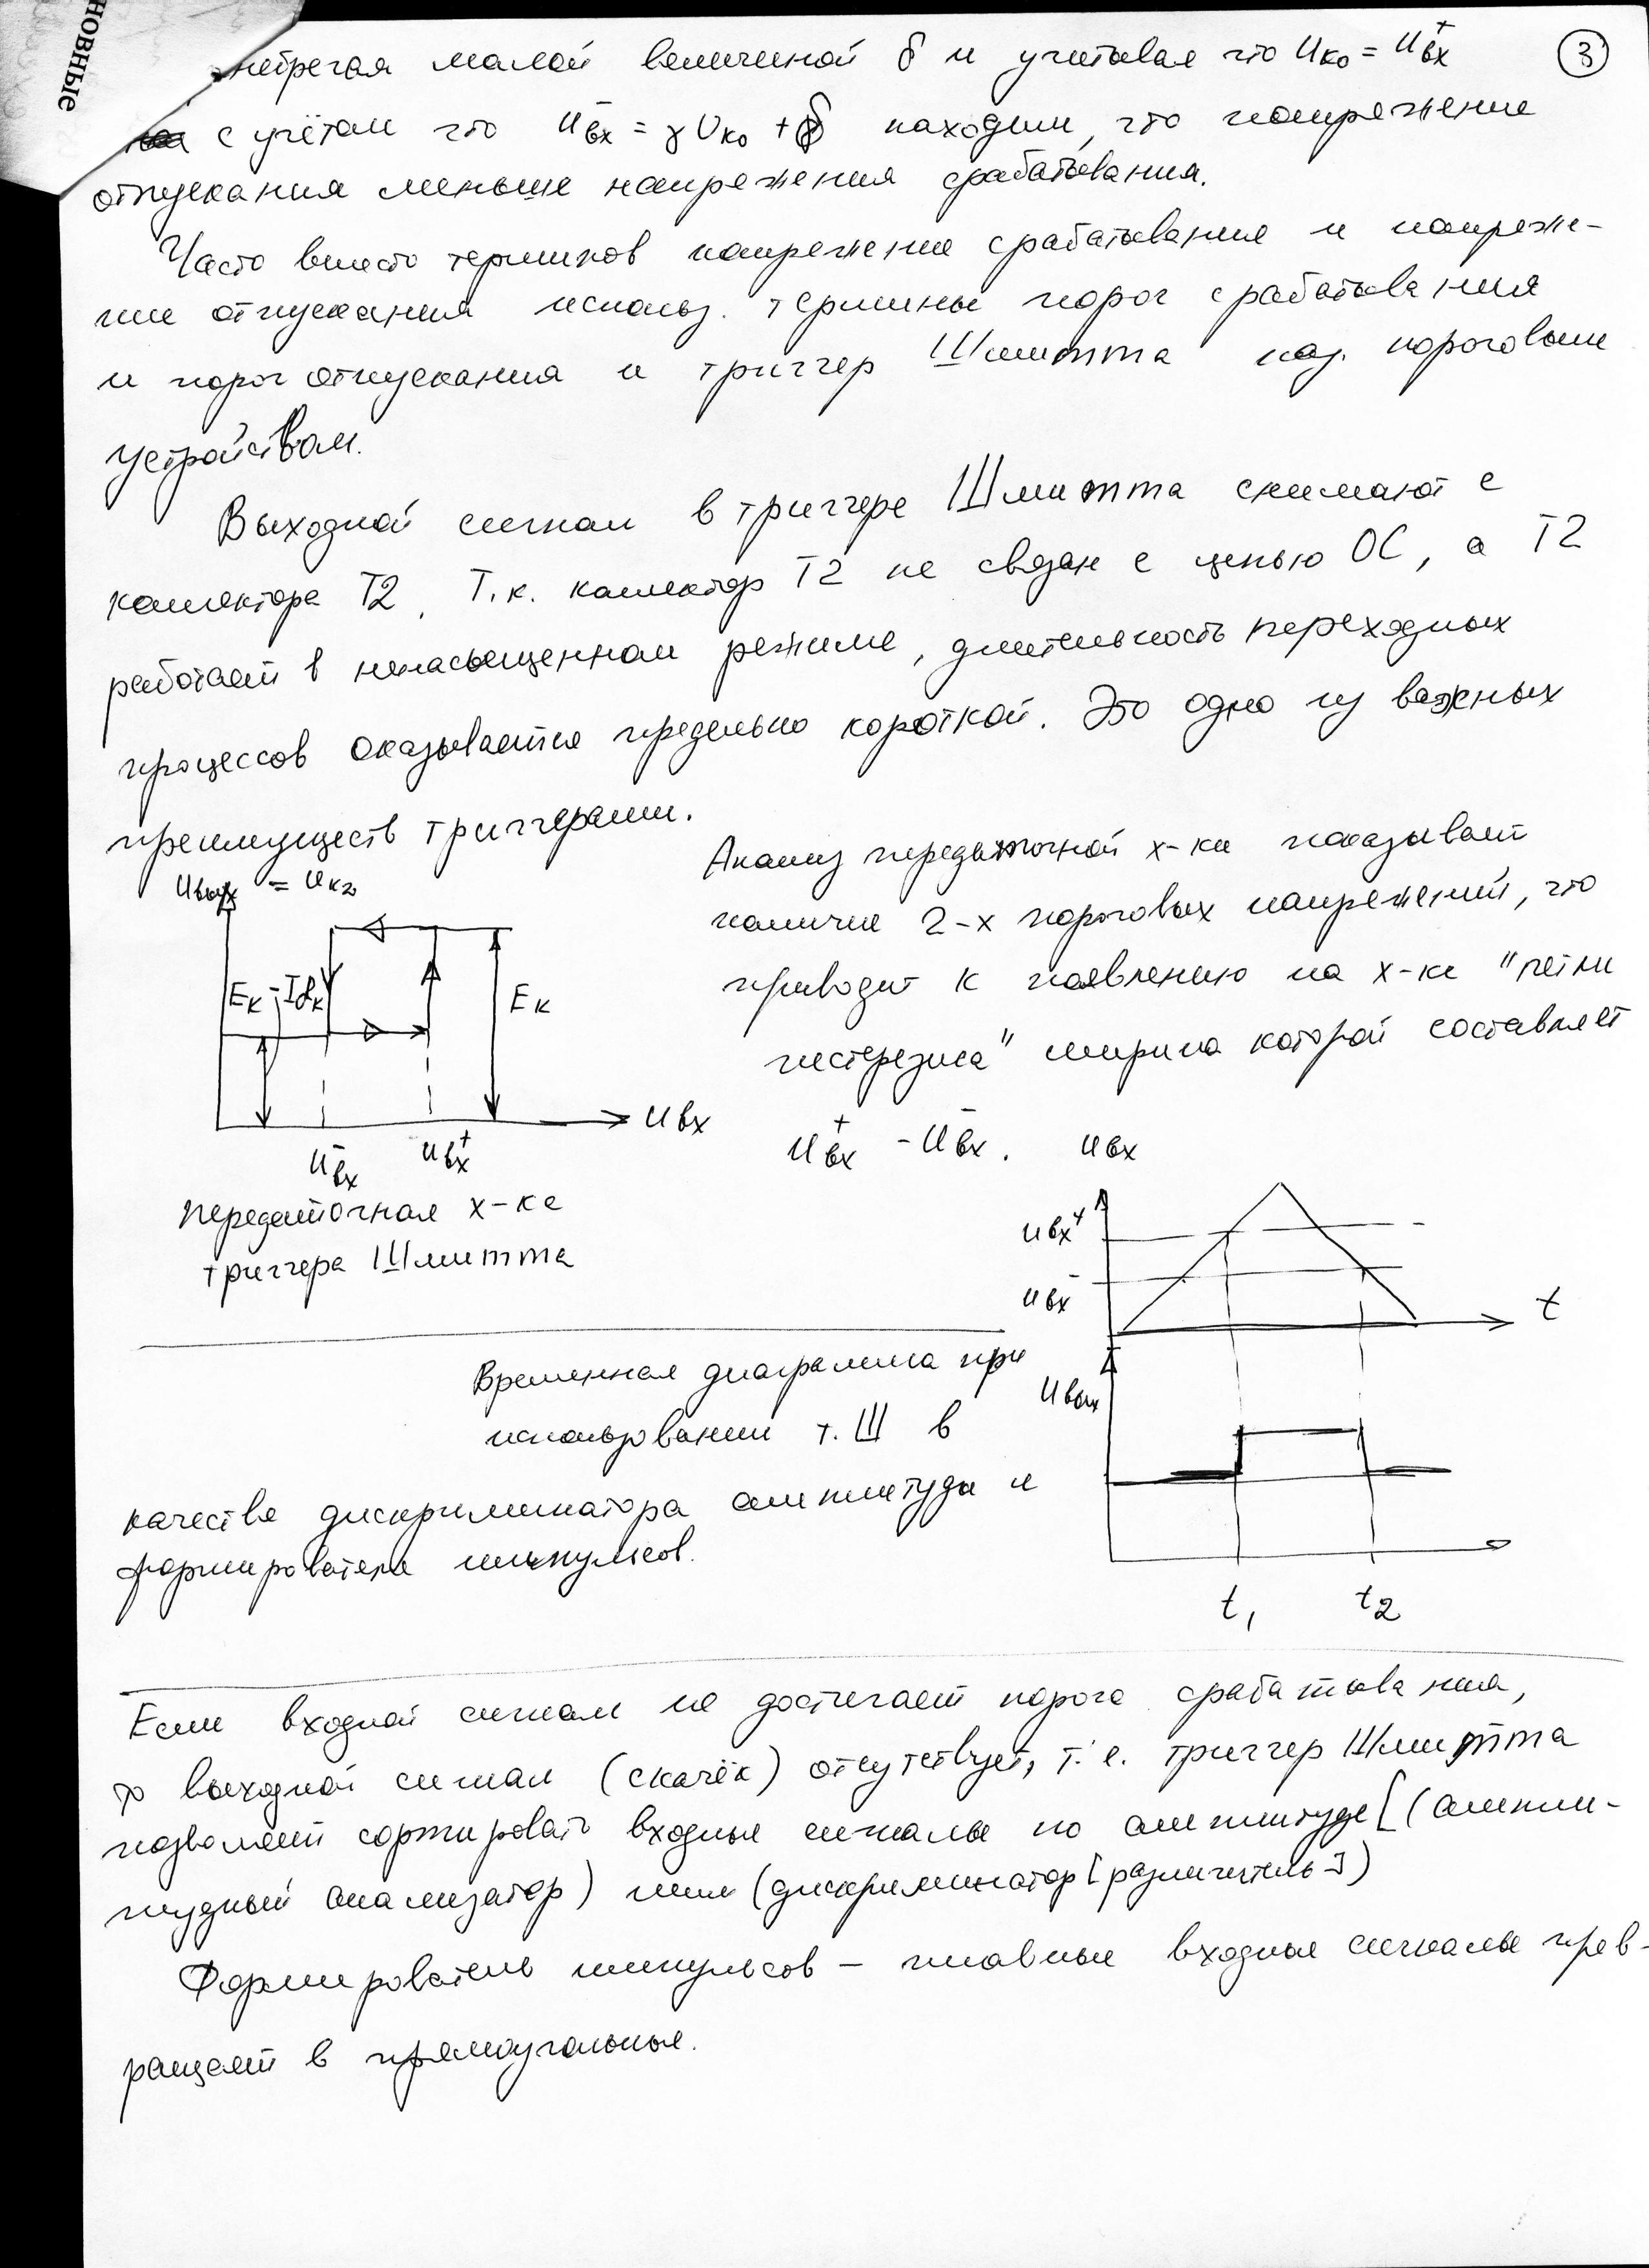 новные
3
небрегая малой величиной δ и учитывая что Uко = U⁺вх
с учётом что U⁻вх = γUко + δ находим, что напряжение
отпускания меньше напряжения срабатывания.
Часто вместо терминов напряжение срабатывания и напряже-
ние отпускания использ. термины порог срабатывания
и порог отпускания и триггер Шмитта наз. пороговым
устройством.
Выходной сигнал в триггере Шмитта снимают с
коллектора T2. Т.к. коллектор T2 не связан с цепью ОС, а T2
работает в ненасыщенном режиме, длительность переходных
процессов оказывается предельно короткой. Это одно из важных
преимуществ триггерами.
Uвых = Uк2
Eк - IRк
Eк
Uвх
U⁻вх
Uвх⁺
Передаточная х-ка
триггера Шмитта
Анализ передаточной х-ки показывает
наличие 2-х пороговых напряжений, что
приводит к появлению на х-ке "петли
гистерезиса" ширина которой составляет
U⁺вх - U⁻вх.
Uвх
Uвх⁺
Uвх⁻
t
Uвых
t1
t2
Временная диаграмма при
использовании т. Ш в
качестве дискриминатора амплитуды и
формирователя импульсов.
Если входной сигнал не достигает порога срабатывания,
то выходной сигнал (скачёк) отсутствует, т.е. триггер Шмитта
позволяет сортировать входные сигналы по амплитуде [(ампли-
тудный анализатор) или (дискриминатор [различитель])
Формирователь импульсов - плавные входные сигналы прев-
ращает в прямоугольные.